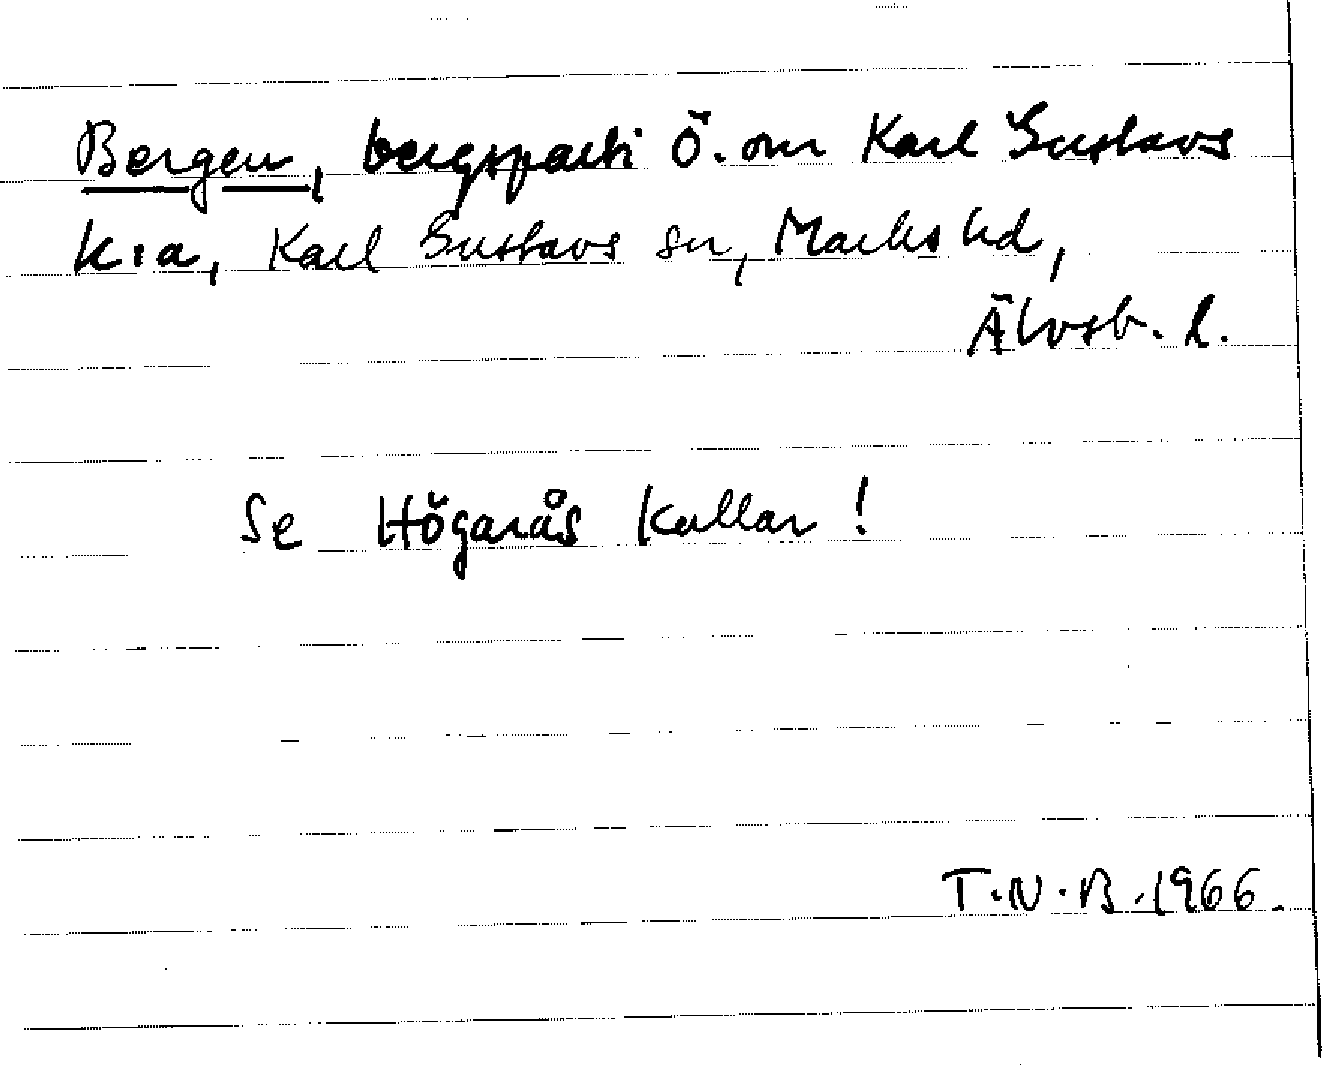 Bergen, bergsparti Ö. om Karl Gustavs
k:a, Karl Gustavs sn, Marks hd,
Älvsb. l.
Se Högarås Kullar!
T.N.B. 1966.